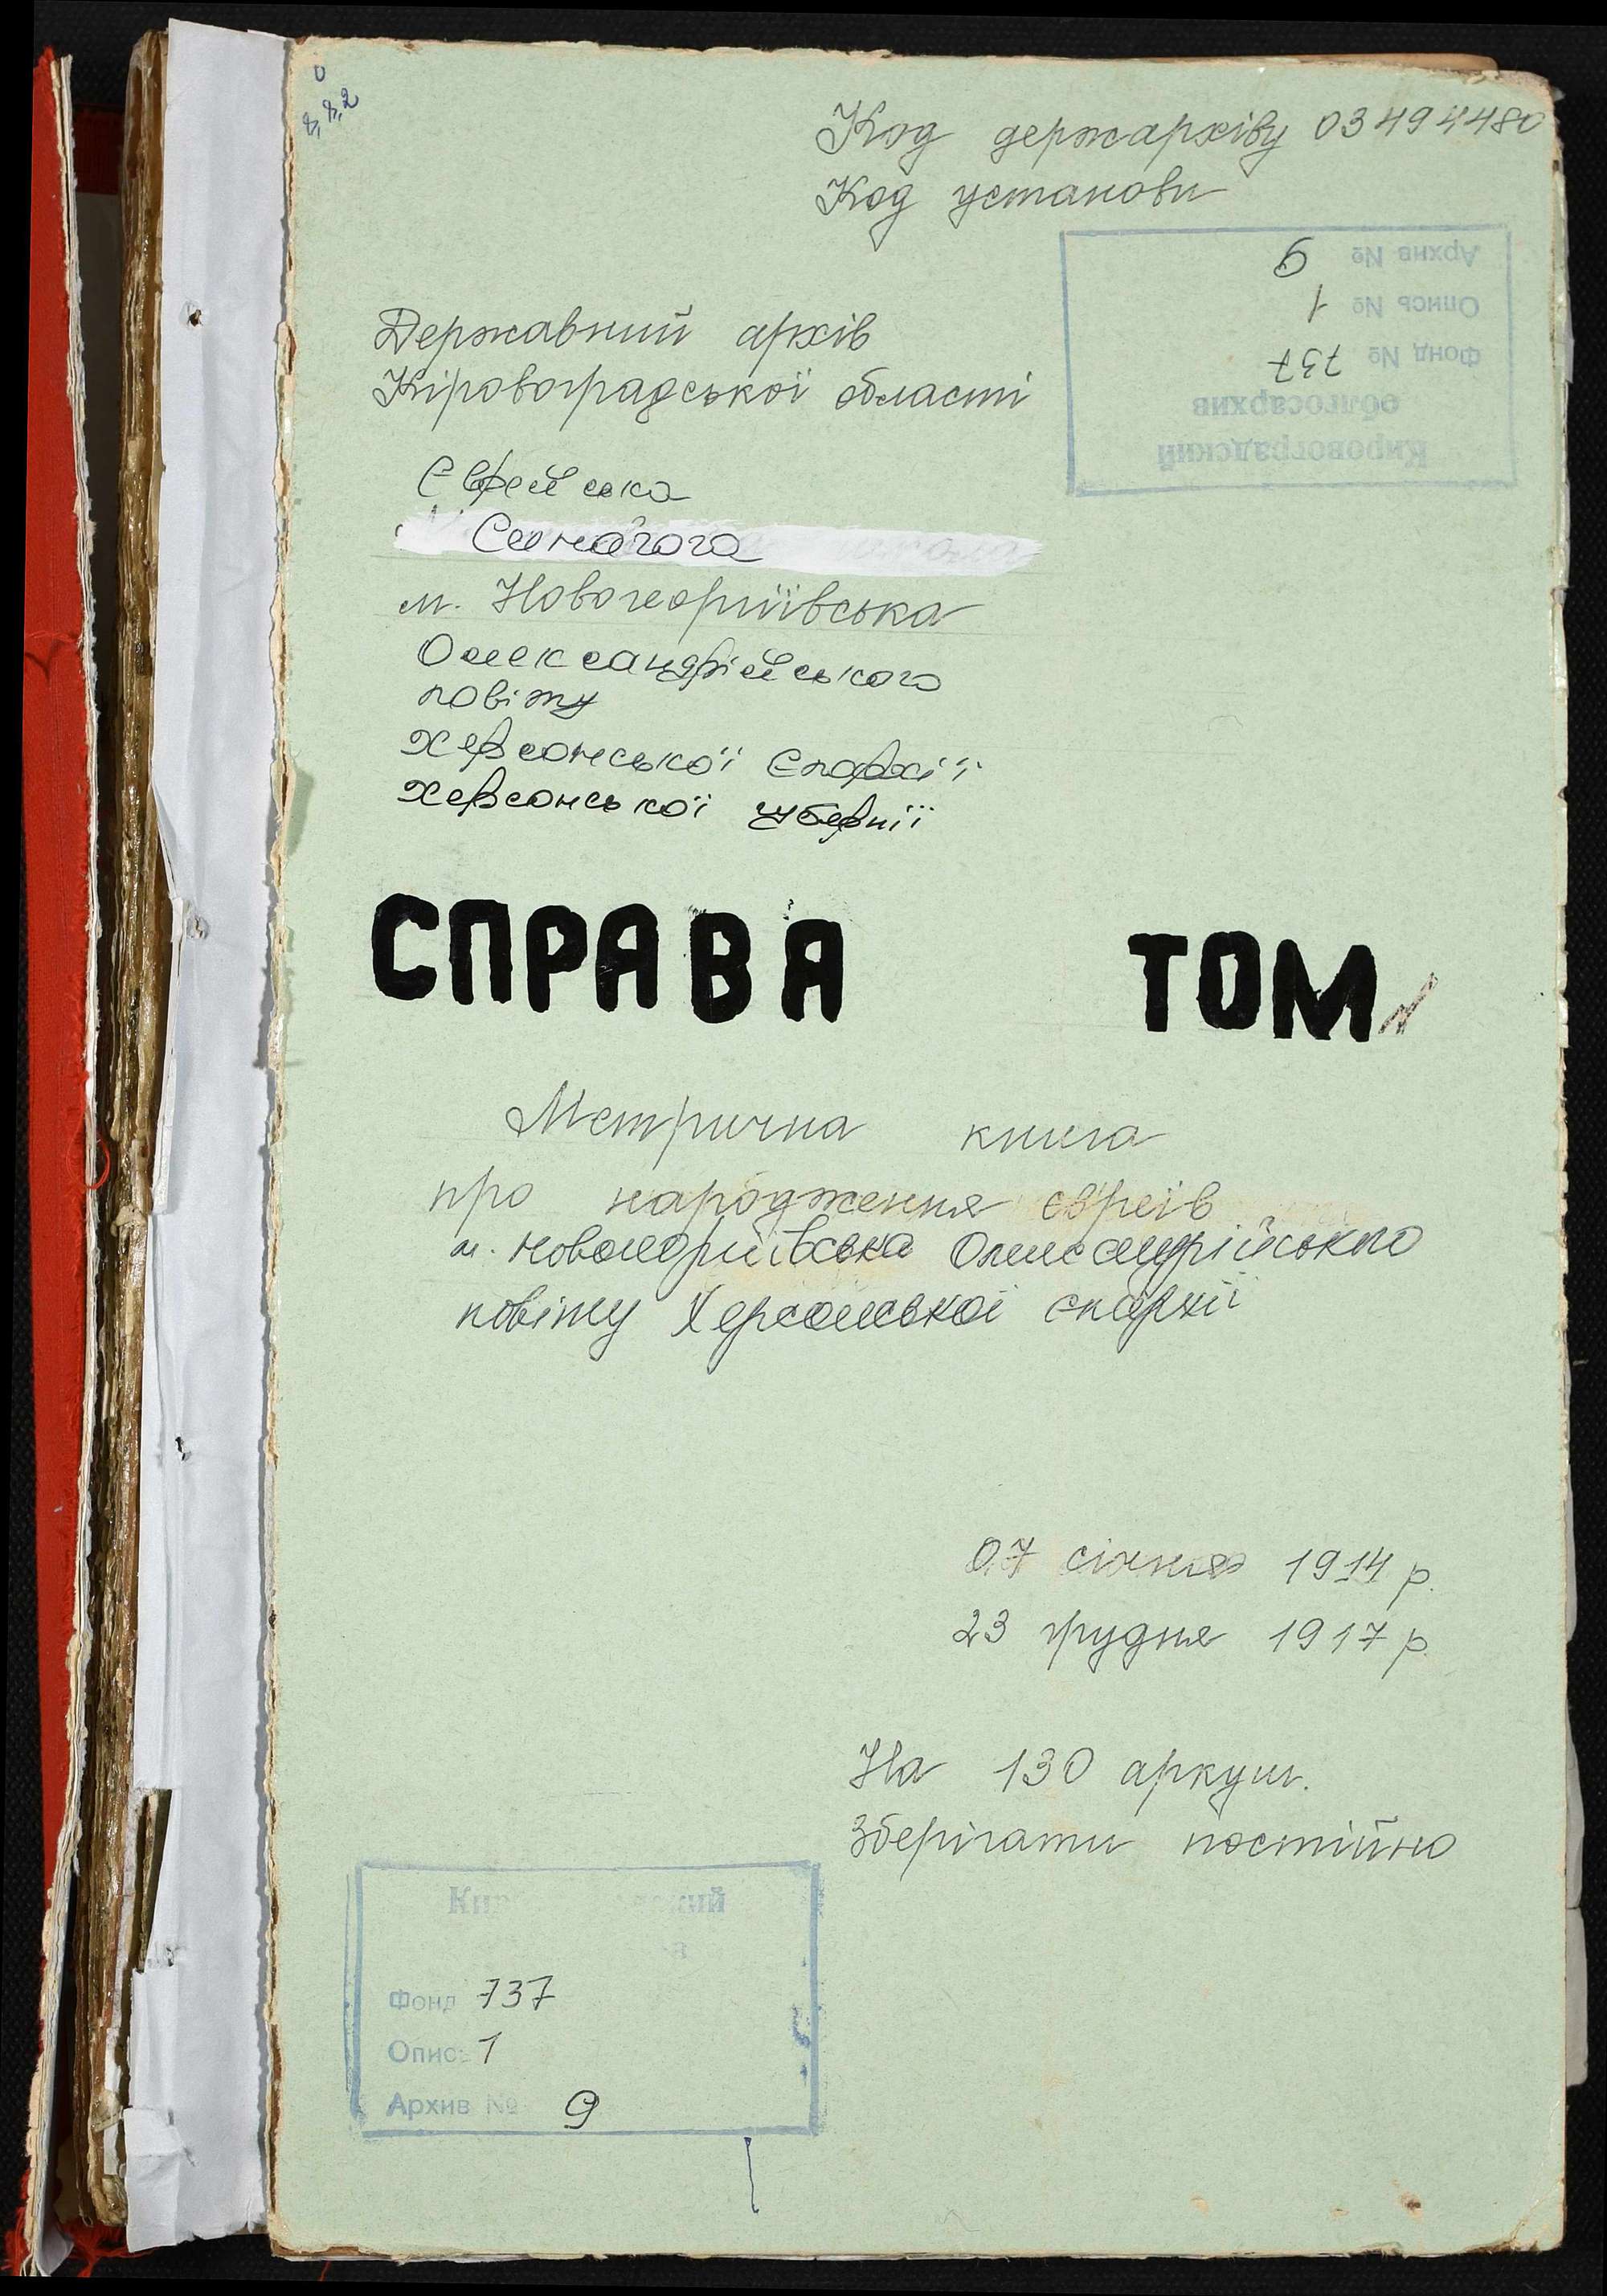 8,8,2
Код держархіву 03494480
Код установи
Кировоградский
облгосархив
Фонд № 737
Опись № 1
Архив № 9
Державний архів
Кіровоградської області
Єврейська
Синагога
м. Новогеоргіївська
Олександрійського
повіту
Херсонської Єпархії
Херсонської губернії
СПРАВА ТОМ
Метрична книга
про народження євреїв
м. Новогеоргіївська Олександрійського
повіту Херсонської єпархії
07 січня 1914 р.
23 грудня 1917 р.
На 130 аркуш.
Зберігати постійно
Фонд 737
Опись 1
Архив № 9